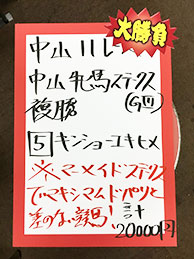 大勝負
中山11レース
中山牝馬ステークス
(GIII)
複勝
5 キンショーユキヒメ
※マーメイドステークス
でマキシマムドパリと
差のない競馬!
20000円